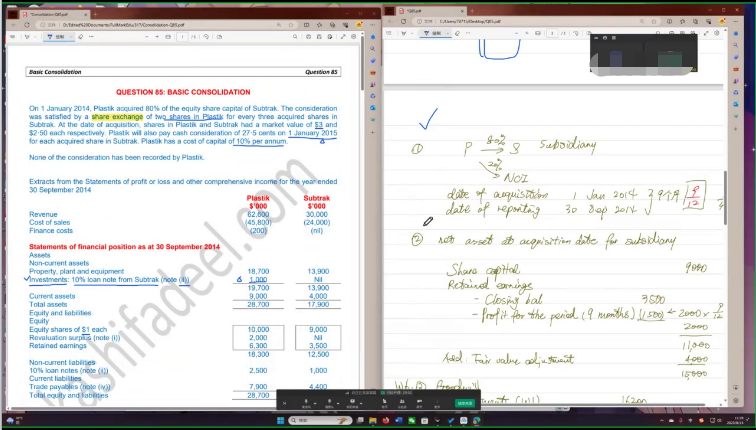 *Consolidation-Q85.pdf
Basic Consolidation
Question 85
QUESTION 85: BASIC CONSOLIDATION
On 1 January 2014, Plastik acquired 80% of the equity share capital of Subtrak. The consideration
was satisfied by a share exchange of two shares in Plastik for every three acquired shares in
Subtrak. At the date of acquisition, shares in Plastik and Subtrak had a market value of $3 and
$2·50 each respectively. Plastik will also pay cash consideration of 27·5 cents on 1 January 2015
for each acquired share in Subtrak. Plastik has a cost of capital of 10% per annum.
None of the consideration has been recorded by Plastik.
Extracts from the Statements of profit or loss and other comprehensive income for the year ended
30 September 2014
Plastik Subtrak
$'000 $'000
Revenue 62,600 30,000
Cost of sales (45,800) (24,000)
Finance costs (200) (nil)
Statements of financial position as at 30 September 2014
Assets
Non-current assets
Property, plant and equipment 18,700 13,900
Investments: 10% loan note from Subtrak (note (ii)) 1,000 Nil
19,700 13,900
Current assets 9,000 4,000
Total assets 28,700 17,900
Equity and liabilities
Equity
Equity shares of $1 each 10,000 9,000
Revaluation surplus (note (i)) 2,000 Nil
Retained earnings 6,300 3,500
18,300 12,500
Non-current liabilities
10% loan notes (note (ii)) 2,500 1,000
Current liabilities
Trade payables (note (iv)) 7,900 4,400
Total equity and liabilities 28,700
kashifadeel.com
① P 80% → S Subsidiary
20%
NCI
date of acquisition 1 Jan 2014 } 9个月 9/12
date of reporting 30 Sep 2014
② Net asset at acquisition date for subsidiary
Share capital 9000
Retained earnings
- Closing bal 3500
- Profit for the period (9 months) (1,500) ← 2000 × 9/12
2000
11,000
Add: Fair value adjustment 4000
15,000